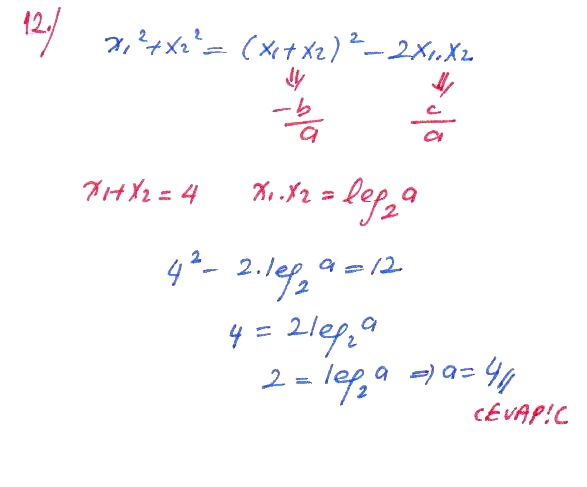 12.)
x₁² + x₂² = (x₁ + x₂)² - 2x₁.x₂
⇓ ⇓
-b/a c/a
x₁ + x₂ = 4 x₁.x₂ = log₂a
4² - 2.log₂a = 12
4 = 2log₂a
2 = log₂a ⇒ a = 4//
CEVAP!C